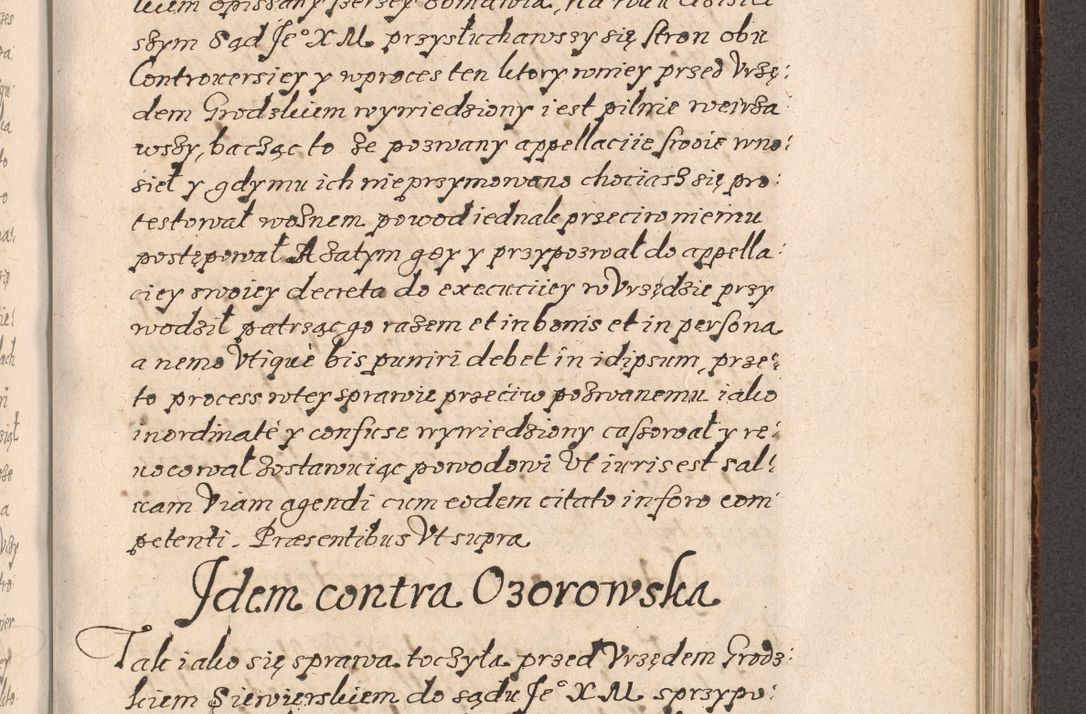 kiem opissany szerzey odmawia, na roku dzisiei
szym Sąd Je° X M przysłuchawszy się stron obu
Controwersiey y wproces ten ktory wniey przed Vrzę:
dem Grodzkiem wywiedziony iest pilnie weirza
wszy, bacząc to że pozwany appellaciie swoie wno:
sieł y gdy mu ich nie przymowano chociasz się pro:
testował woźnem powod iednak przeciw niemu
postępował A zatym gdy y przypozwał do appella:
ciey swoiey decreta do execuciiey w Vrzędzie przy
wodził patrząc go razem et in bonis et in persona
a nemo Vtiquè bis puniri debet in idipsum, prze:
to process wtey sprawie przeciw pozwanemu iako
inordinatè y confuse wywiedziony cassował y re:
uocował zostawuiąc powodowi Vt iuris est sal:
uam Viam agendi cum eodem citato in foro com
petenti. Præsentibus Vt supra
Idem contra Ozorowska
Tak iako się sprawa toczyła przed Vrzędem Grodz:
kiem Siewierskiem do sądu Je° X M sprzypo: